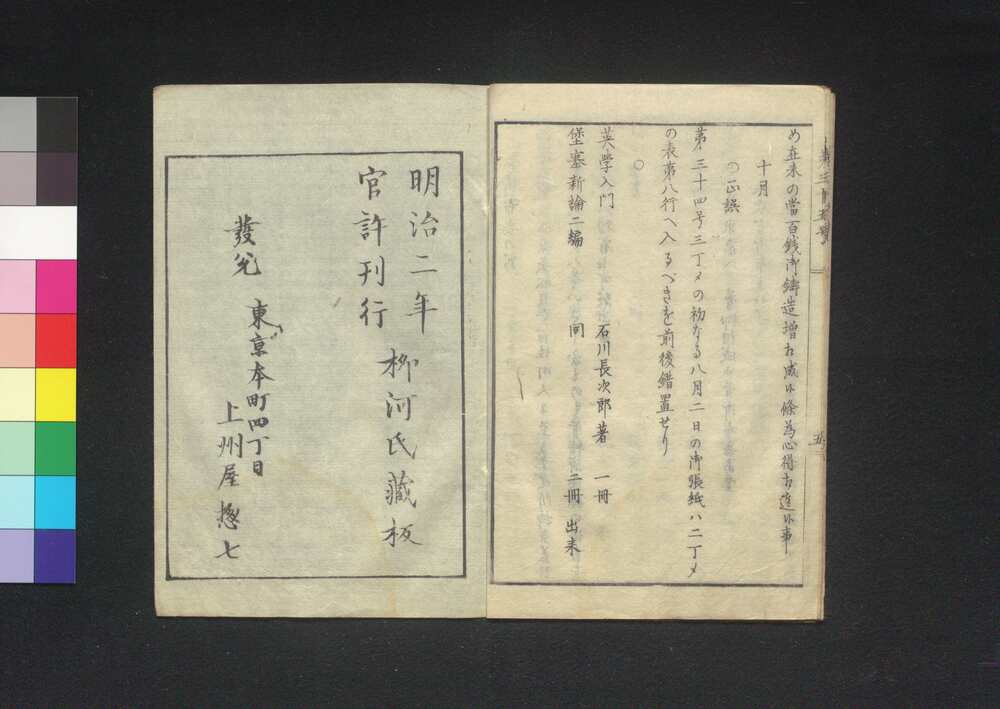 め在来の當百銭御鋳造増相成候條為心得相達候事
十月
○正誤
第三十四号三丁メの初なる八月二日の御張紙ハ二丁メ
の表第八行へ入るべきを前後錯置せり
○
英学入門 石川長次郎著 一冊
堡塞新論二編 同 二冊 出来
五
明治二年
官許刊行
柳河氏藏板
發兌
東京本町四丁目
上州屋惣七